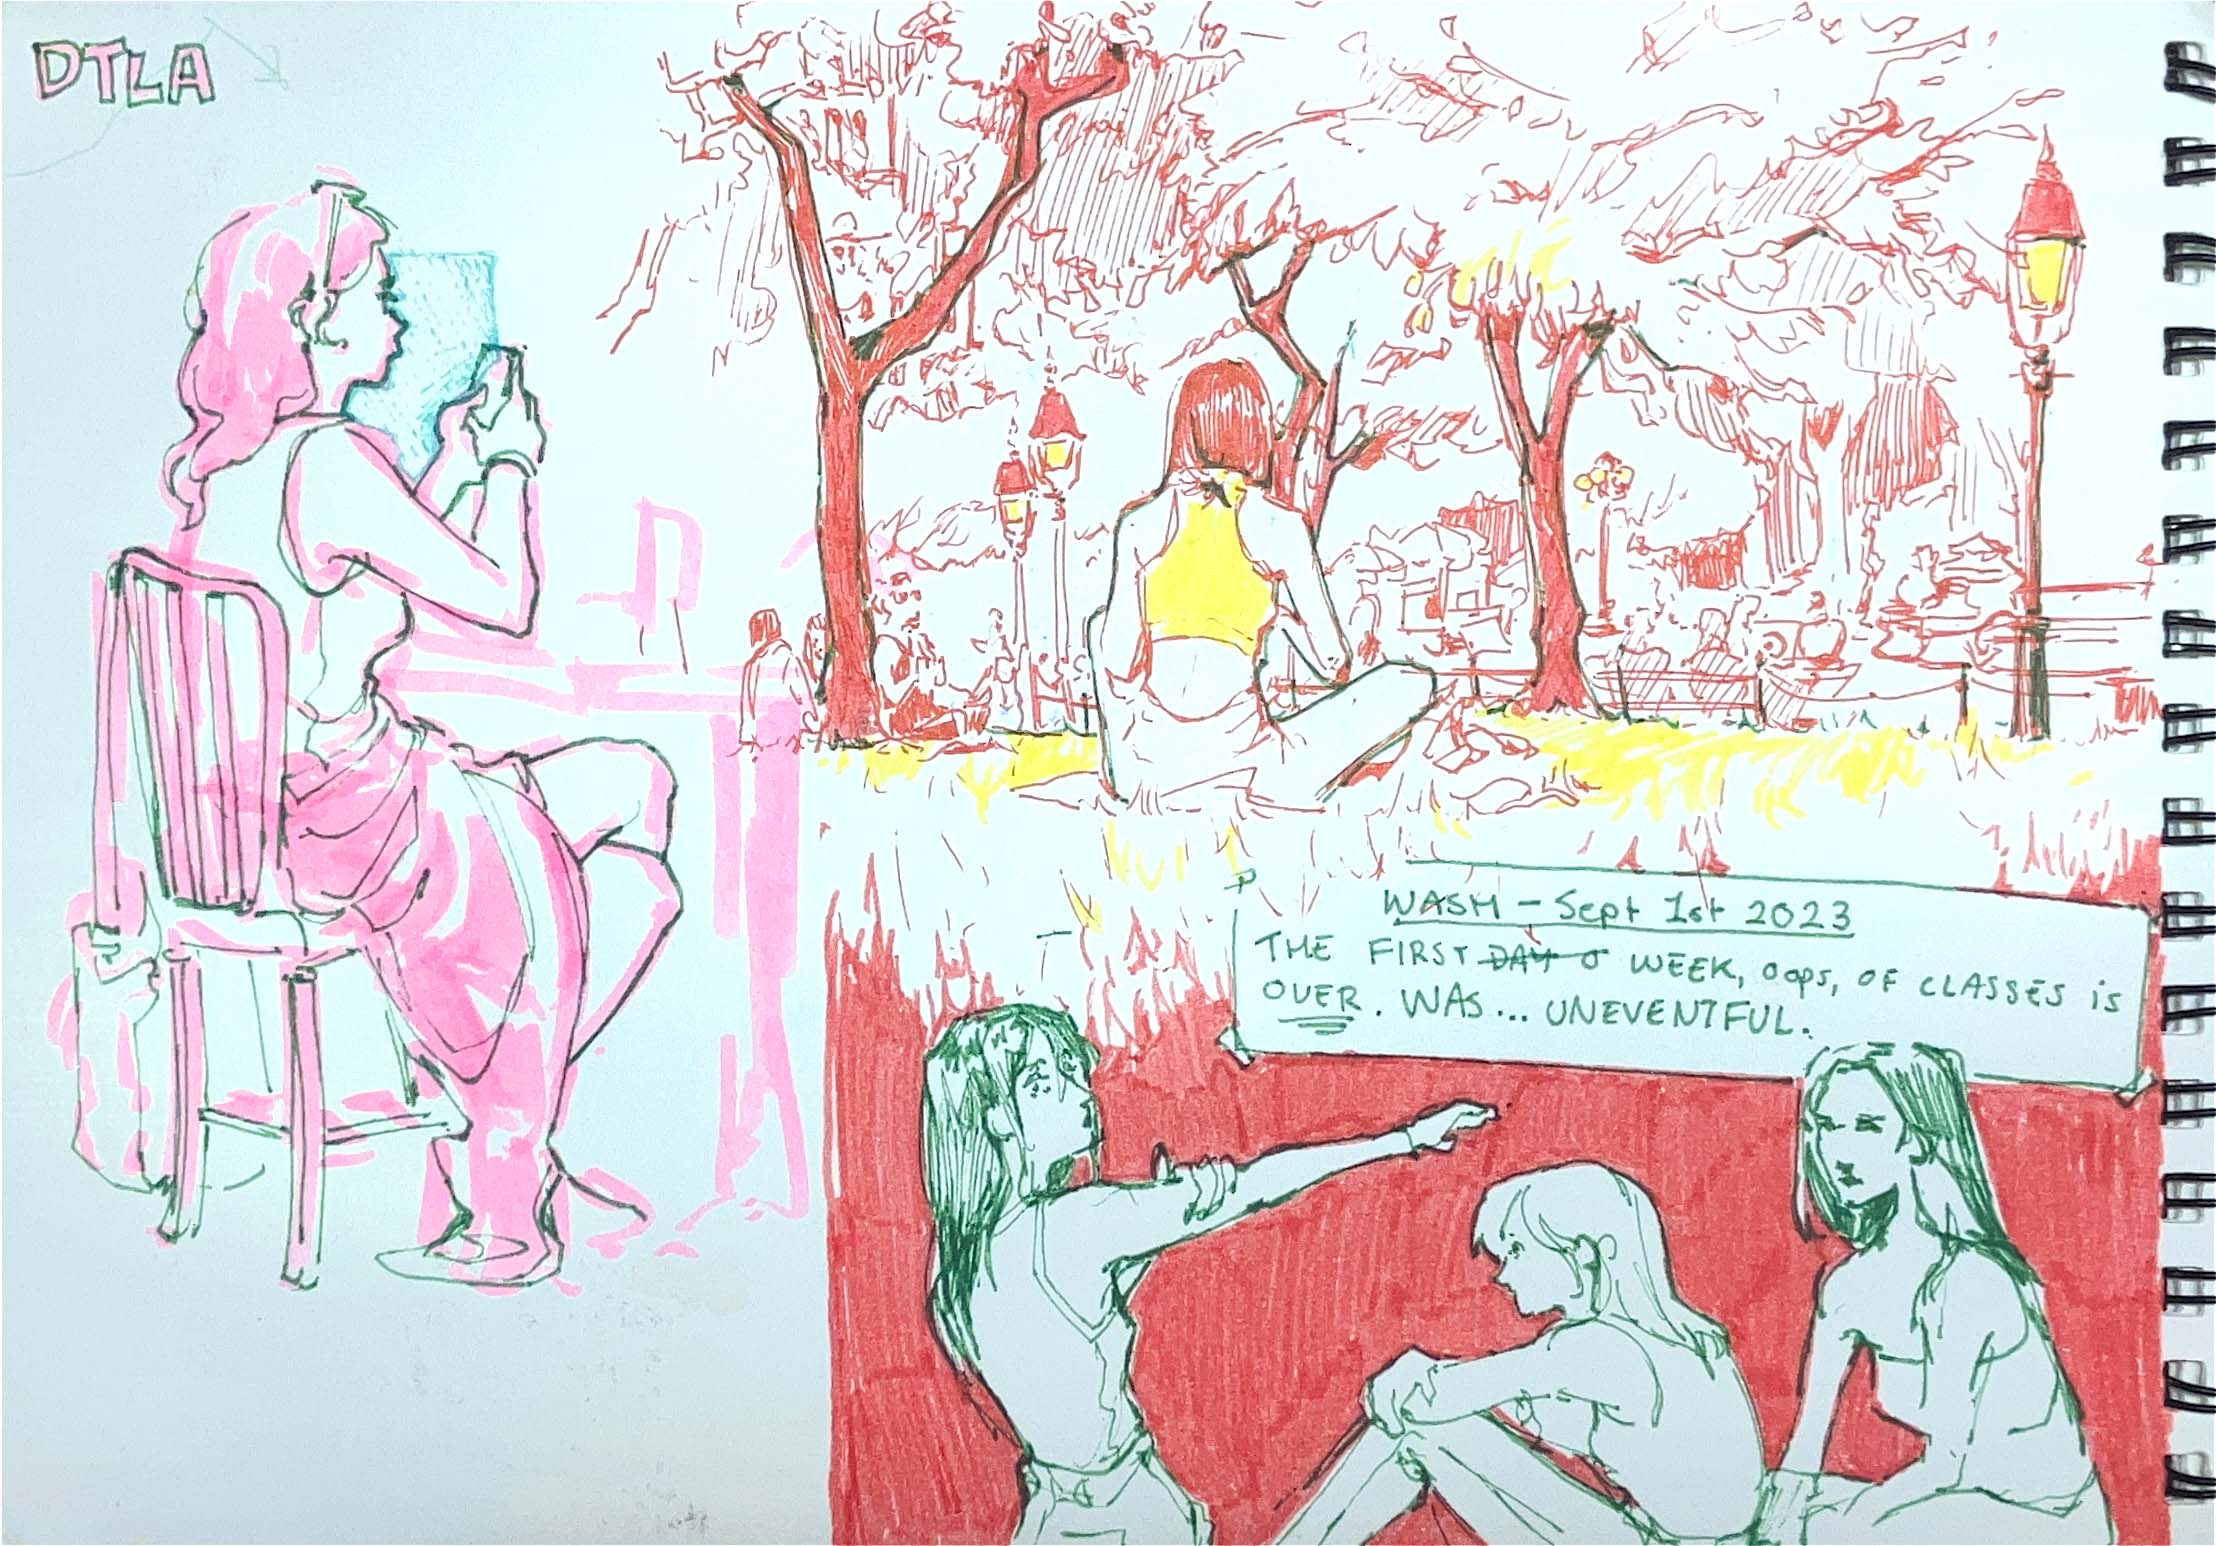 DTLA
WASH - Sept 1st 2023
THE FIRST DAY O WEEK, oops, OF CLASSES is
OVER. WAS... UNEVENTFUL.